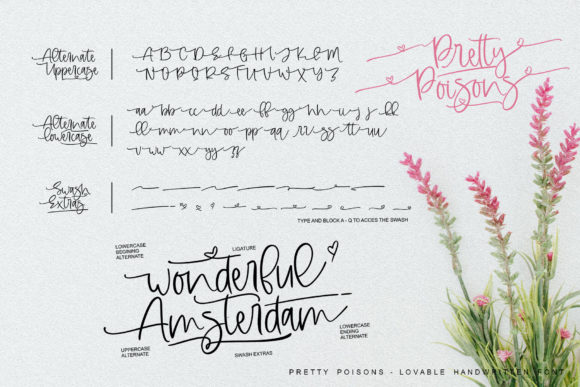 Alternate
Uppercase
A B C D E F G H I J K L M
N O P Q R S T U V W X Y Z
Pretty
Poisons
Alternate
lowercase
aa bb cc dd ee ff gg hh ii jj kk
ll mm nn oo pp qq rr ss tt uu
vv ww xx yy zz
Swash
Extras
TYPE AND BLOCK A - Q TO ACCES THE SWASH
LOWERCASE
BEGINING
ALTERNATE
LIGATURE
wonderful
Amsterdam
UPPERCASE
ALTERNATE
SWASH EXTRAS
LOWERCASE
ENDING
ALTERNATE
PRETTY POISONS - LOVABLE HANDWRITTEN FONT